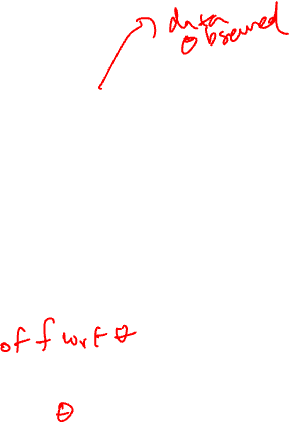 data
observed
of f wrt θ
θ